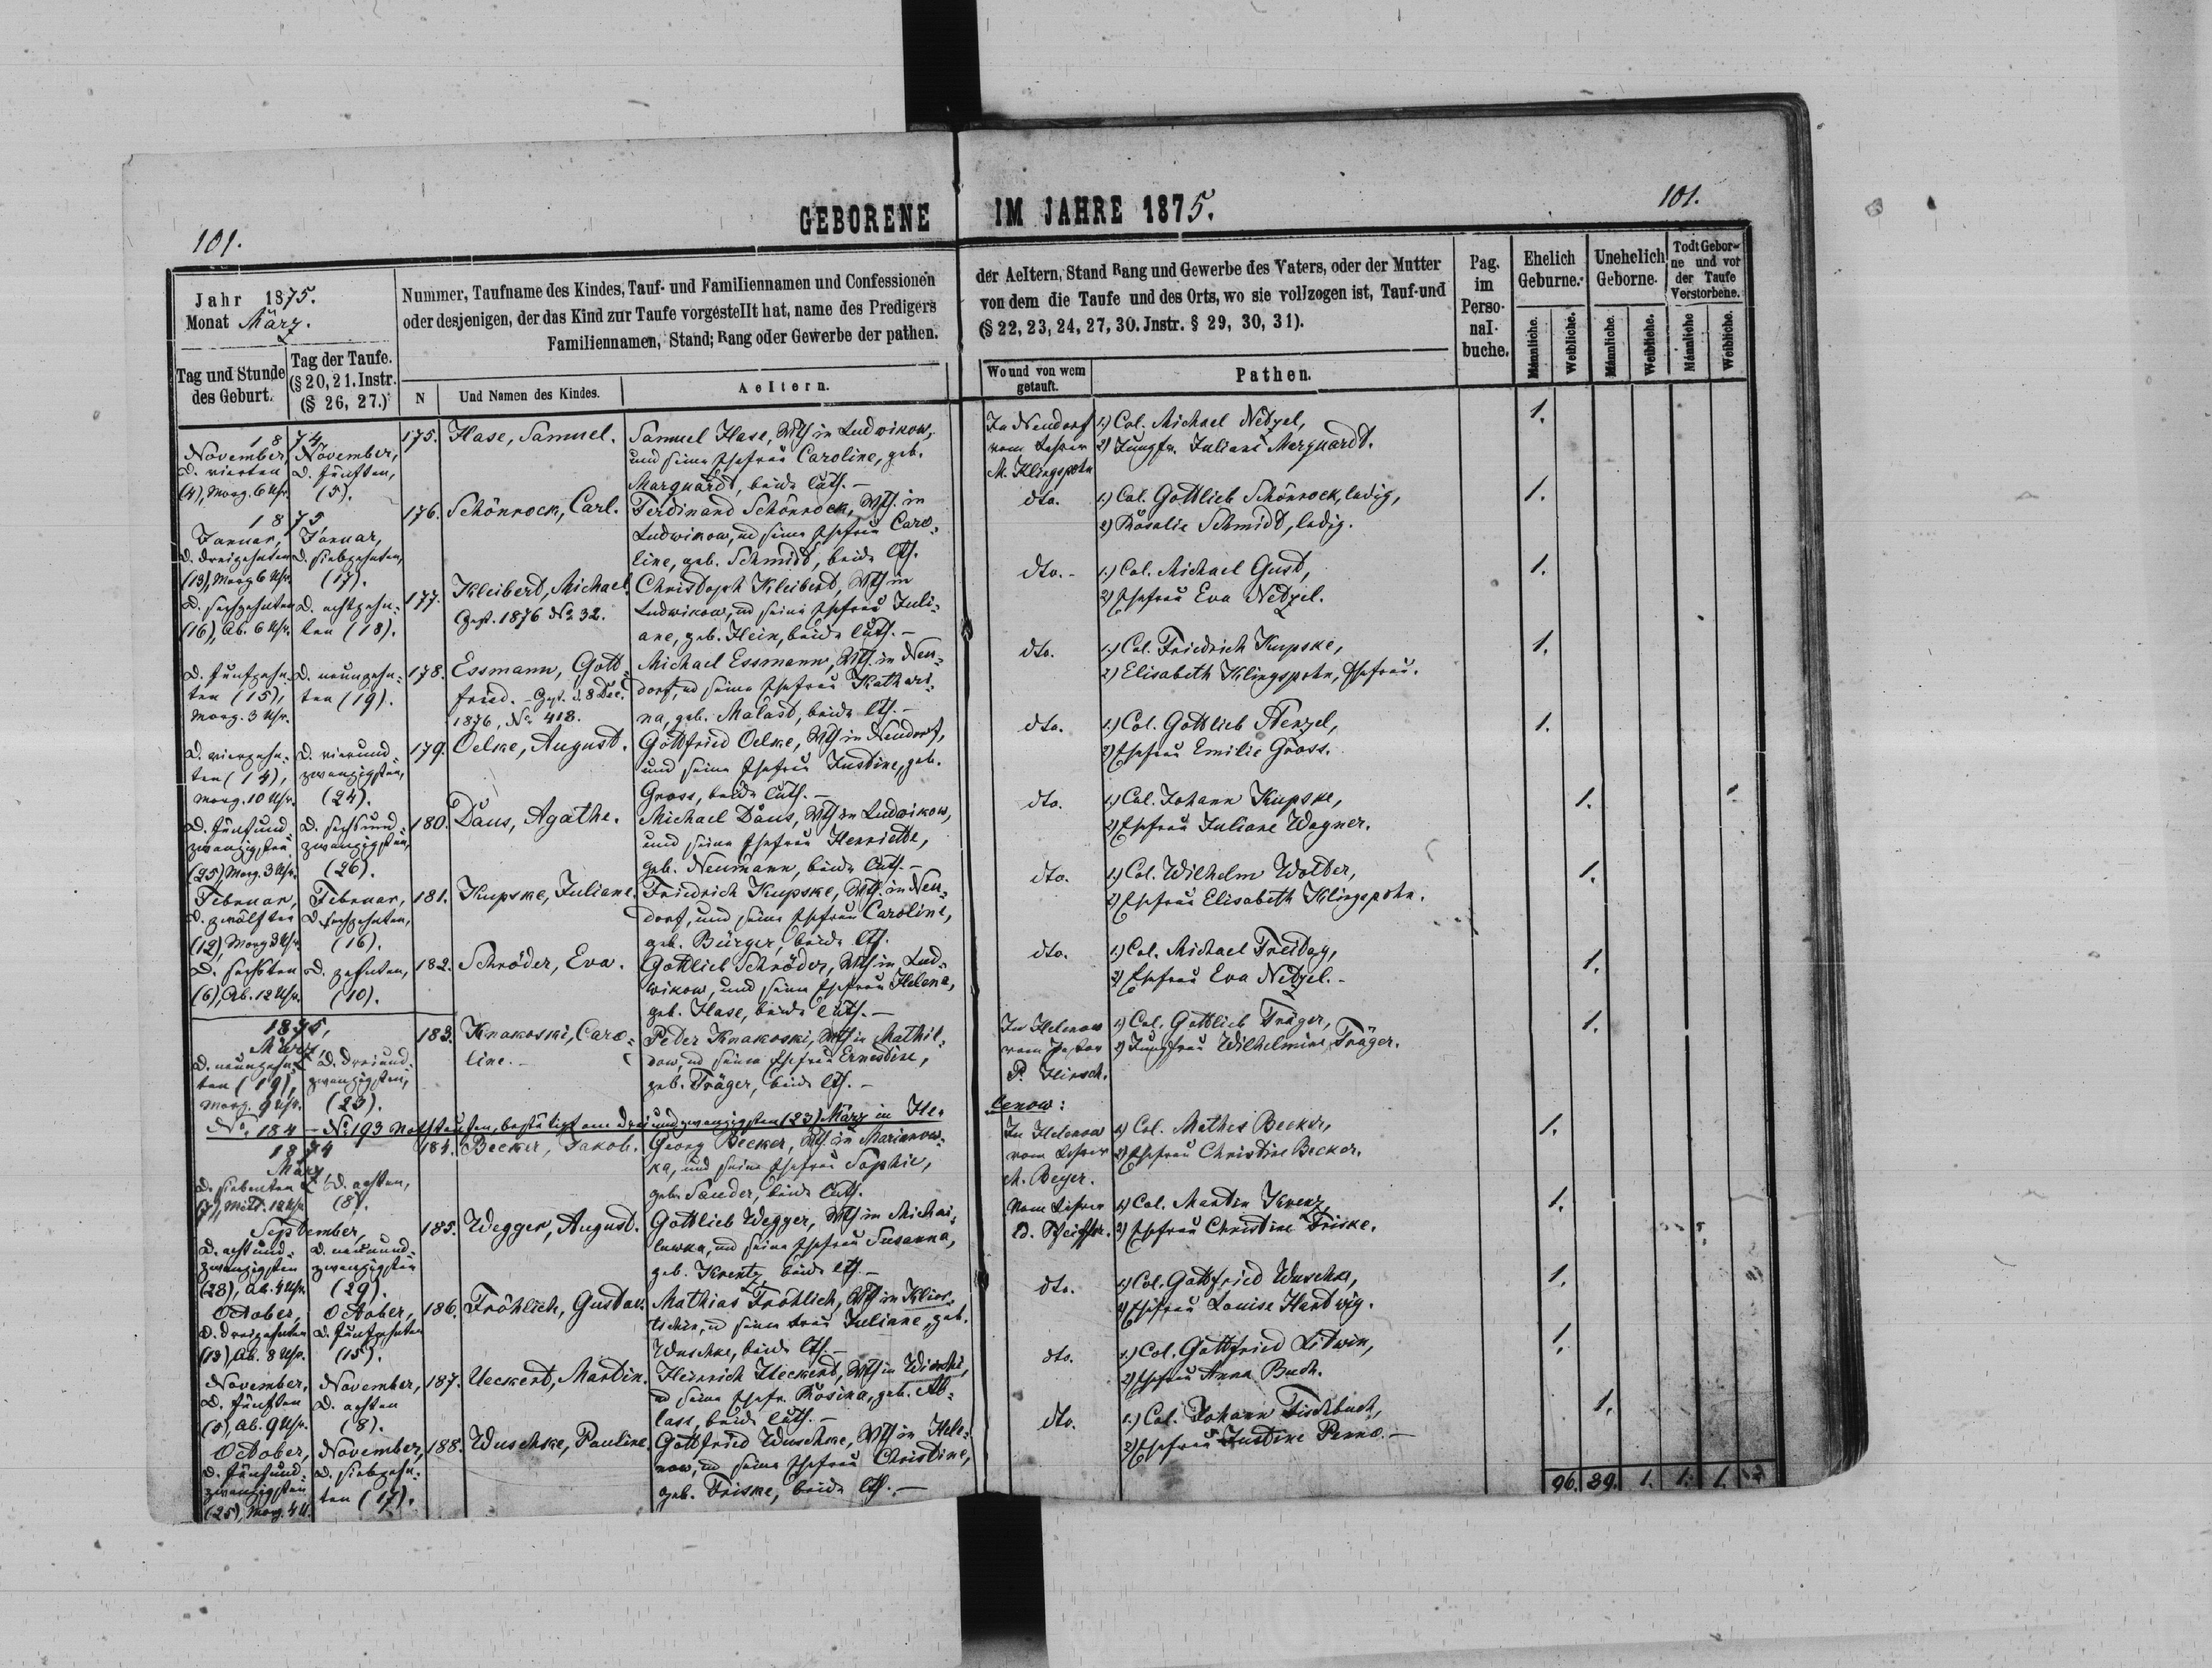 GEBORENE IM JAHRE 1875.
101.
101.
Jahr 1875.
Monat März.
Nummer, Taufname des Kindes, Tauf- und Familiennamen und Confessionen
oder desjenigen, der das Kind zur Taufe vorgestellt hat, name des Predigers
Familiennamen, Stand; Rang oder Gewerbe der pathen.
der Aeltern, Stand Rang und Gewerbe des Vaters, oder der Mutter
von dem die Taufe und des Orts, wo sie vollzogen ist, Tauf-und
(§ 22, 23, 24, 27, 30. Jnstr. § 29, 30, 31).
Pag.
im
Perso-
nal-
buche.
Ehelich
Geburne.
Unehelich
Geborne.
Todt Gebor-
ne und vor
der Taufe
Verstorbene.
Männliche.
Weibliche.
Männliche.
Weibliche.
Männliche
Weibliche.
Tag und Stunde
des Geburt.
Tag der Taufe.
(§ 20, 21. Instr.
(§ 26, 27.)
N
Und Namen des Kindes.
Aeltern.
Wo und von wem
getauft.
Pathen.
1874
November
d. vierten
(4), Morg. 6 Uhr.
November,
d. fünften,
(5).
175. Hase, Samuel.
Samuel Hase, Wth in Ludwikow,
und seine Ehefrau Caroline, geb.
Marquardt, beide luth. –
In Neudorf
vom Lehrer
M. Klingspohn
1.) Col. Michael Netzel,
2) Jungfr. Juliane Marquardt.
1.
1875,
Januar,
d. dreizehnten
(13), Morg 6 Uhr.
Januar,
d. siebzehnten,
(17).
176. Schönrock, Carl.
Ferdinand Schönrock, Wth. in
Ludwikow, nd seine Ehefrau Caro-
line, geb. Schmidt, beide lth.
dto.
1.) Col. Gottlieb Schönrock, ledig,
2) Rosalie Schmidt, ledig.
1.
d. sechzehnten
(16), Ab. 6 Uhr.
d. achtzehn-
ten (18).
177. Kleibert, Michael.
Gest. 1876 No 32.
Christoph Kleibert, Wth in
Ludwikow, nd seine Ehefrau Juli-
ane, geb. Hein, beide luth. –
dto. -
1.) Col. Michael Gust,
2) Ehefrau Eva Netzel.
1.
d. fünfzehn-
ten (15),
Morg. 3 Uhr.
d. neunzehn-
ten (19).
178. Essmann, Gott-
fried. – Gest. d. 8 Dec.
1876, No 418.
Michael Essmann, Wth. in Neu-
dorf, nd seine Ehefrau Kathari-
na, geb. Malast, beide lth. –
dto.
1.) Col. Friedrich Kupske,
2) Elisabeth Klingspohn, Ehefrau.
1.
d. vierzehn-
ten (14),
Morg. 10 Uhr.
d. vierund-
zwanzigsten,
(24).
179. Oelke, August.
Gottfried Oelke, Wth in Neudorf,
und seine Ehefrau Justine, geb.
Gross, beide luth. –
dto.
1.) Col. Gottlieb Henzel,
2) Ehefrau Emilie Gross.
1.
d. fünfund-
zwanzigsten
(25) Morg. 3 Uhr.
d. sechsund-
zwanzigsten,
(26).
180. Daus, Agathe.
Michael Daus, Wth in Ludwikow,
und seine Ehefrau Henriette,
geb. Neumann, beide luth. –
dto.
1.) Col. Johann Kupske,
2) Ehefrau Juliane Wagner.
1.
1.
Februar,
d. zwölften
(12), Morg 3 Uhr.
Februar,
d. sechzehnten,
(16).
181. Kupske, Juliane.
Friedrich Kupske, Wth. in Neu-
dorf, und seine Ehefrau Caroline,
geb. Bürger, beide lth.
dto.
1.) Col. Wilhelm Wolter,
2) Ehefrau Elisabeth Klingspohn.
1.
d. sechsten
(6), Ab. 12 Uhr.
d. zehnten,
(10).
182. Schröder, Eva.
Gottlieb Schröder, Wth in Lud-
wikow, und seine Ehefrau Helene,
geb. Hase, beide luth. –
dto.
1.) Col. Michael Freitag,
2) Ehefrau Eva Netzel. –
1.
1875,
März,
d. neunzehn-
ten (19),
Morg. 9 Uhr.
d. dreiund-
zwanzigsten,
(23).
183. Knakoski, Caro-
line. –
Peter Knakoski, Wth in Mathil-
dow, nd seine Ehefrau Ernestine,
geb. Träger, beide lth. –
In Helenow
vom Pastor
P. Hirsch.
1.) Col. Gottlieb Träger,
2) Jungfrau Wilhelmine Träger.
1.
No 184 – No 193 Nothtaufen, bestätigt am dreiundzwanzigsten (23) März in He-
lenow:
1874
März,
d. siebenten
(7), Mitt. 12 Uhr
d. achten,
(8).
184. Becker, Jakob.
Georg Becker, Wth in Marianow-
ka, und seine Ehefrau Sophie,
geb. Sander, beide luth.
In Helenow
vom Lehrer
A. Beyer.
1.) Col. Mathes Becker,
2) Ehefrau Christine Becker.
1.
September,
d. achtund-
zwanzigsten
(28), Ab. 4 Uhr.
d. neunund-
zwanzigsten
(29).
185. Wegger, August.
Gottlieb Wegger, Wth in Michai-
lowka, nd seine Ehefrau Susanna,
geb. Krentz, beide lth. –
Vom Lehrer
1.) Col. Martin Krenz,
2) Ehefrau Christine Friske.
1.
October,
d. dreizehnten
(13), Ab. 8 Uhr.
October,
d. fünfzehnten
(15).
186. Fröhlich, Gustav.
Mathias Fröhlich, Wth in
nd seine Frau Juliane, geb.
Wuschke, beide lth. –
dto.
1.) Col. Gottfried Wuschke,
2) Ehefrau Louise Hartwig.
1.
November,
d. fünften
(5), Ab. 9 Uhr.
November,
d. achten
(8).
187. Ueckert, Martin.
Heinrich Ueckert, Wth in
nd seine Ehefr. Rosina, geb. Ab-
lass, beide luth. –
dto.
1.) Col. Gottfried Litwin,
2) Ehefrau Anna Buch.
1.
October,
d. fünfund-
zwanzigsten
(25), Morg. 4 U.
November,
d. siebzehn-
ten (17).
188. Wuschke, Pauline.
Gottfried Wuschke, Wth in Hele-
now, nd seine Ehefrau Christine,
geb. Friske, beide lth. –
dto.
1.) Col. Johann Fischbuch,
2) Ehefrau Justine Penno. –
1.
96. 89. 1. 1. 1.